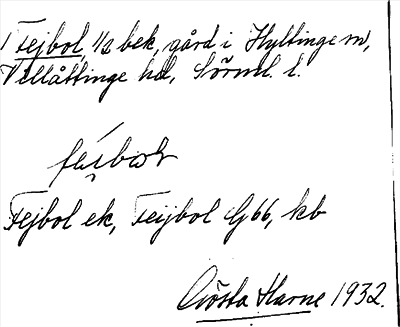 1 Fejbol, 1/2 bek, gård i Hyltinge sn,
Villåttinge hd, Sörml. l.
Fejbol ek, Feijbol G66, kb
Gösta Harne 1932.